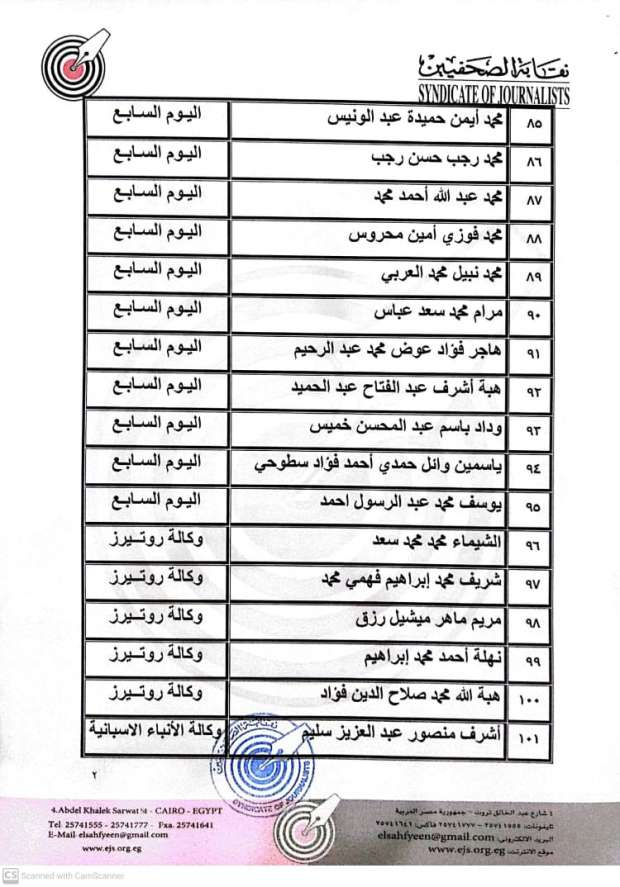 نقابة الصحفيين
SYNDICATE OF JOURNALISTS
٨٥ محمد أيمن حميدة عبد الونيس اليوم السابع
٨٦ محمد رجب حسن رجب اليوم السابع
٨٧ محمد عبد الله أحمد محمد اليوم السابع
٨٨ محمد فوزي أمين محروس اليوم السابع
٨٩ محمد نبيل محمد العربي اليوم السابع
٩٠ مرام محمد سعد عباس اليوم السابع
٩١ هاجر فؤاد عوض محمد عبد الرحيم اليوم السابع
٩٢ هبة أشرف عبد الفتاح عبد الحميد اليوم السابع
٩٣ وداد باسم عبد المحسن خميس اليوم السابع
٩٤ ياسمين وائل حمدي أحمد فؤاد سطوحي اليوم السابع
٩٥ يوسف محمد عبد الرسول احمد اليوم السابع
٩٦ الشيماء محمد محمد سعد وكالة رويترز
٩٧ شريف محمد إبراهيم فهمي محمد وكالة روتيرز
٩٨ مريم ماهر ميشيل رزق وكالة روتيرز
٩٩ نهلة أحمد محمد إبراهيم وكالة روتيرز
١٠٠ هبة الله محمد صلاح الدين فؤاد وكالة روتيرز
١٠١ أشرف منصور عبد العزيز سليم وكالة الأنباء الاسبانية
نقابة الصحفيين
SYNDICATE OF JOURNALISTS
٢
4.Abdel Khalek Sarwat St - CAIRO - EGYPT
Tel. 25741555 - 25741777 - Fax. 25741641
E-Mail: elsahfyeen@gmail.com
www.ejs.org.eg
٤ شارع عبد الخالق ثروت - جمهورية مصر العربية
تليفونات: ٢٥٧٤١٥٥٥ - ٢٥٧٤١٧٧٧ فاكس: ٢٥٧٤١٦٤١
البريد الالكتروني: elsahfyeen@gmail.com
موقع الانترنت: www.ejs.org.eg
CS Scanned with CamScanner